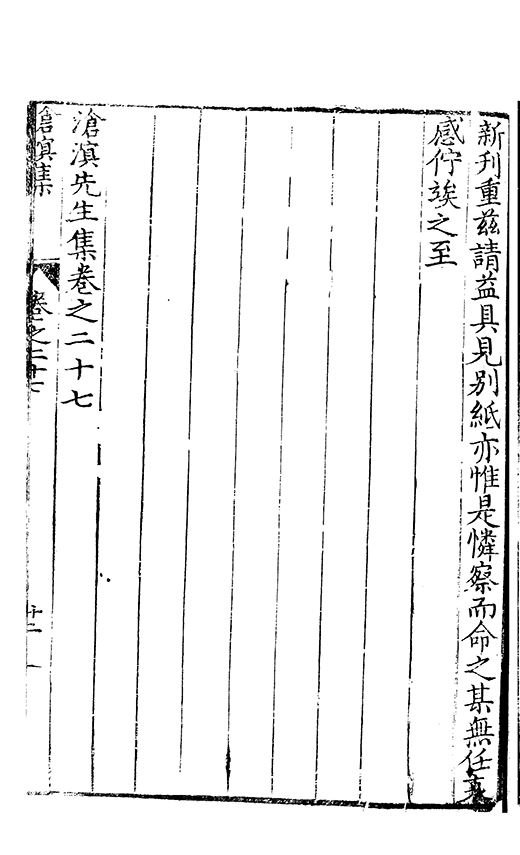 新刊重茲請益具見別紙亦惟是憐察而命之某無任哀
感佇竢之至
滄溟先生集卷之二十七
滄溟集
卷之二十七
十二